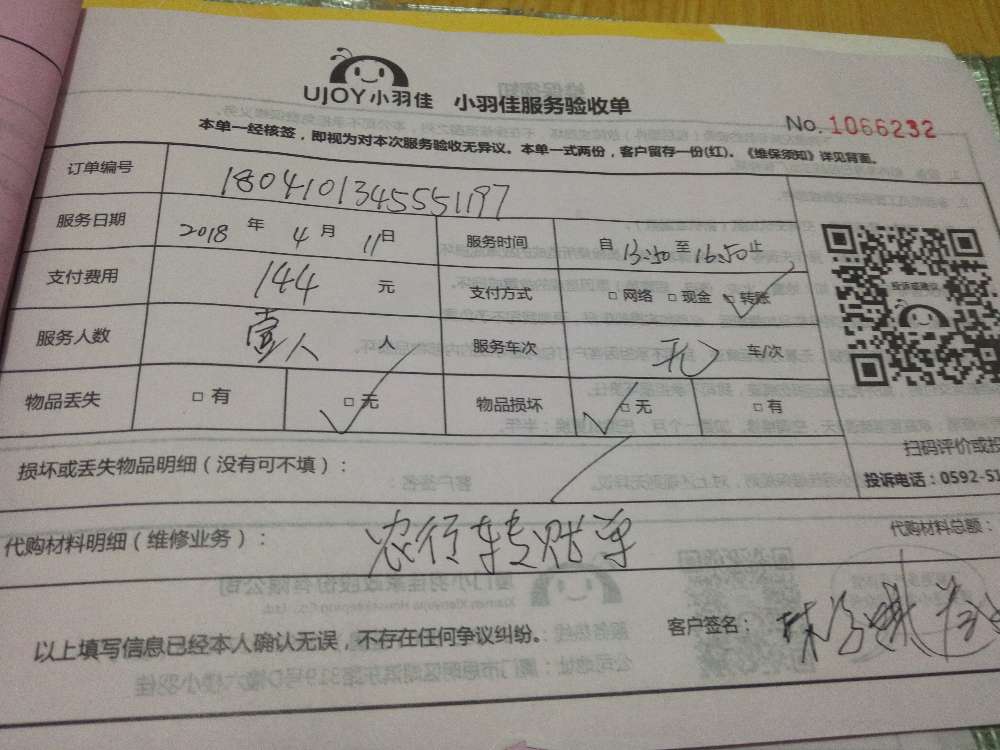 UJOY小羽佳 小羽佳服务验收单
No. 1066232
本单一经核签，即视为对本次服务验收无异议。本单一式两份，客户留存一份(红)。《维保须知》详见背面。
订单编号 1804101345551197
服务日期 2018 年 4 月 11 日 服务时间 自 13:50 至 16:50 止
支付费用 144 元 支付方式 □ 网络 □ 现金 □ 转账
投诉或建议
服务人数 壹人 人 服务车次 无 车/次
物品丢失 □ 有 □ 无 物品损坏 □ 无 □ 有
扫码评价或投
损坏或丢失物品明细（没有可不填）：
投诉电话：0592-51
代购材料明细（维修业务）： 农行转账单 代购材料总额：
以上填写信息已经本人确认无误，不存在任何争议纠纷。 客户签名：